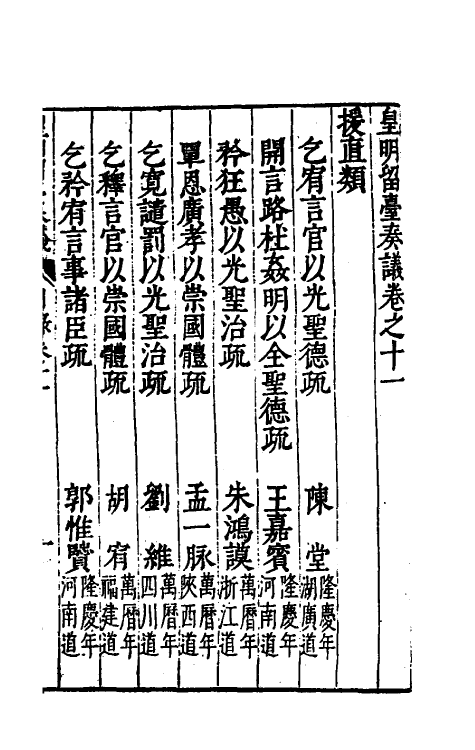 皇明留臺奏議卷之十一
援直類
乞宥言官以光聖德疏 陳堂 隆慶年湖廣道
開言路杜姦明以全聖德疏 王嘉賓 隆慶年河南道
矜狂愚以光聖治疏 朱鴻謨 萬曆年浙江道
單恩廣孝以崇國體疏 孟一脉 萬曆年陝西道
乞寬譴罰以光聖治疏 劉維 萬曆年四川道
乞釋言官以崇國體疏 胡宥 萬曆年福建道
乞矜宥言事諸臣疏 郭惟賢 隆慶年河南道